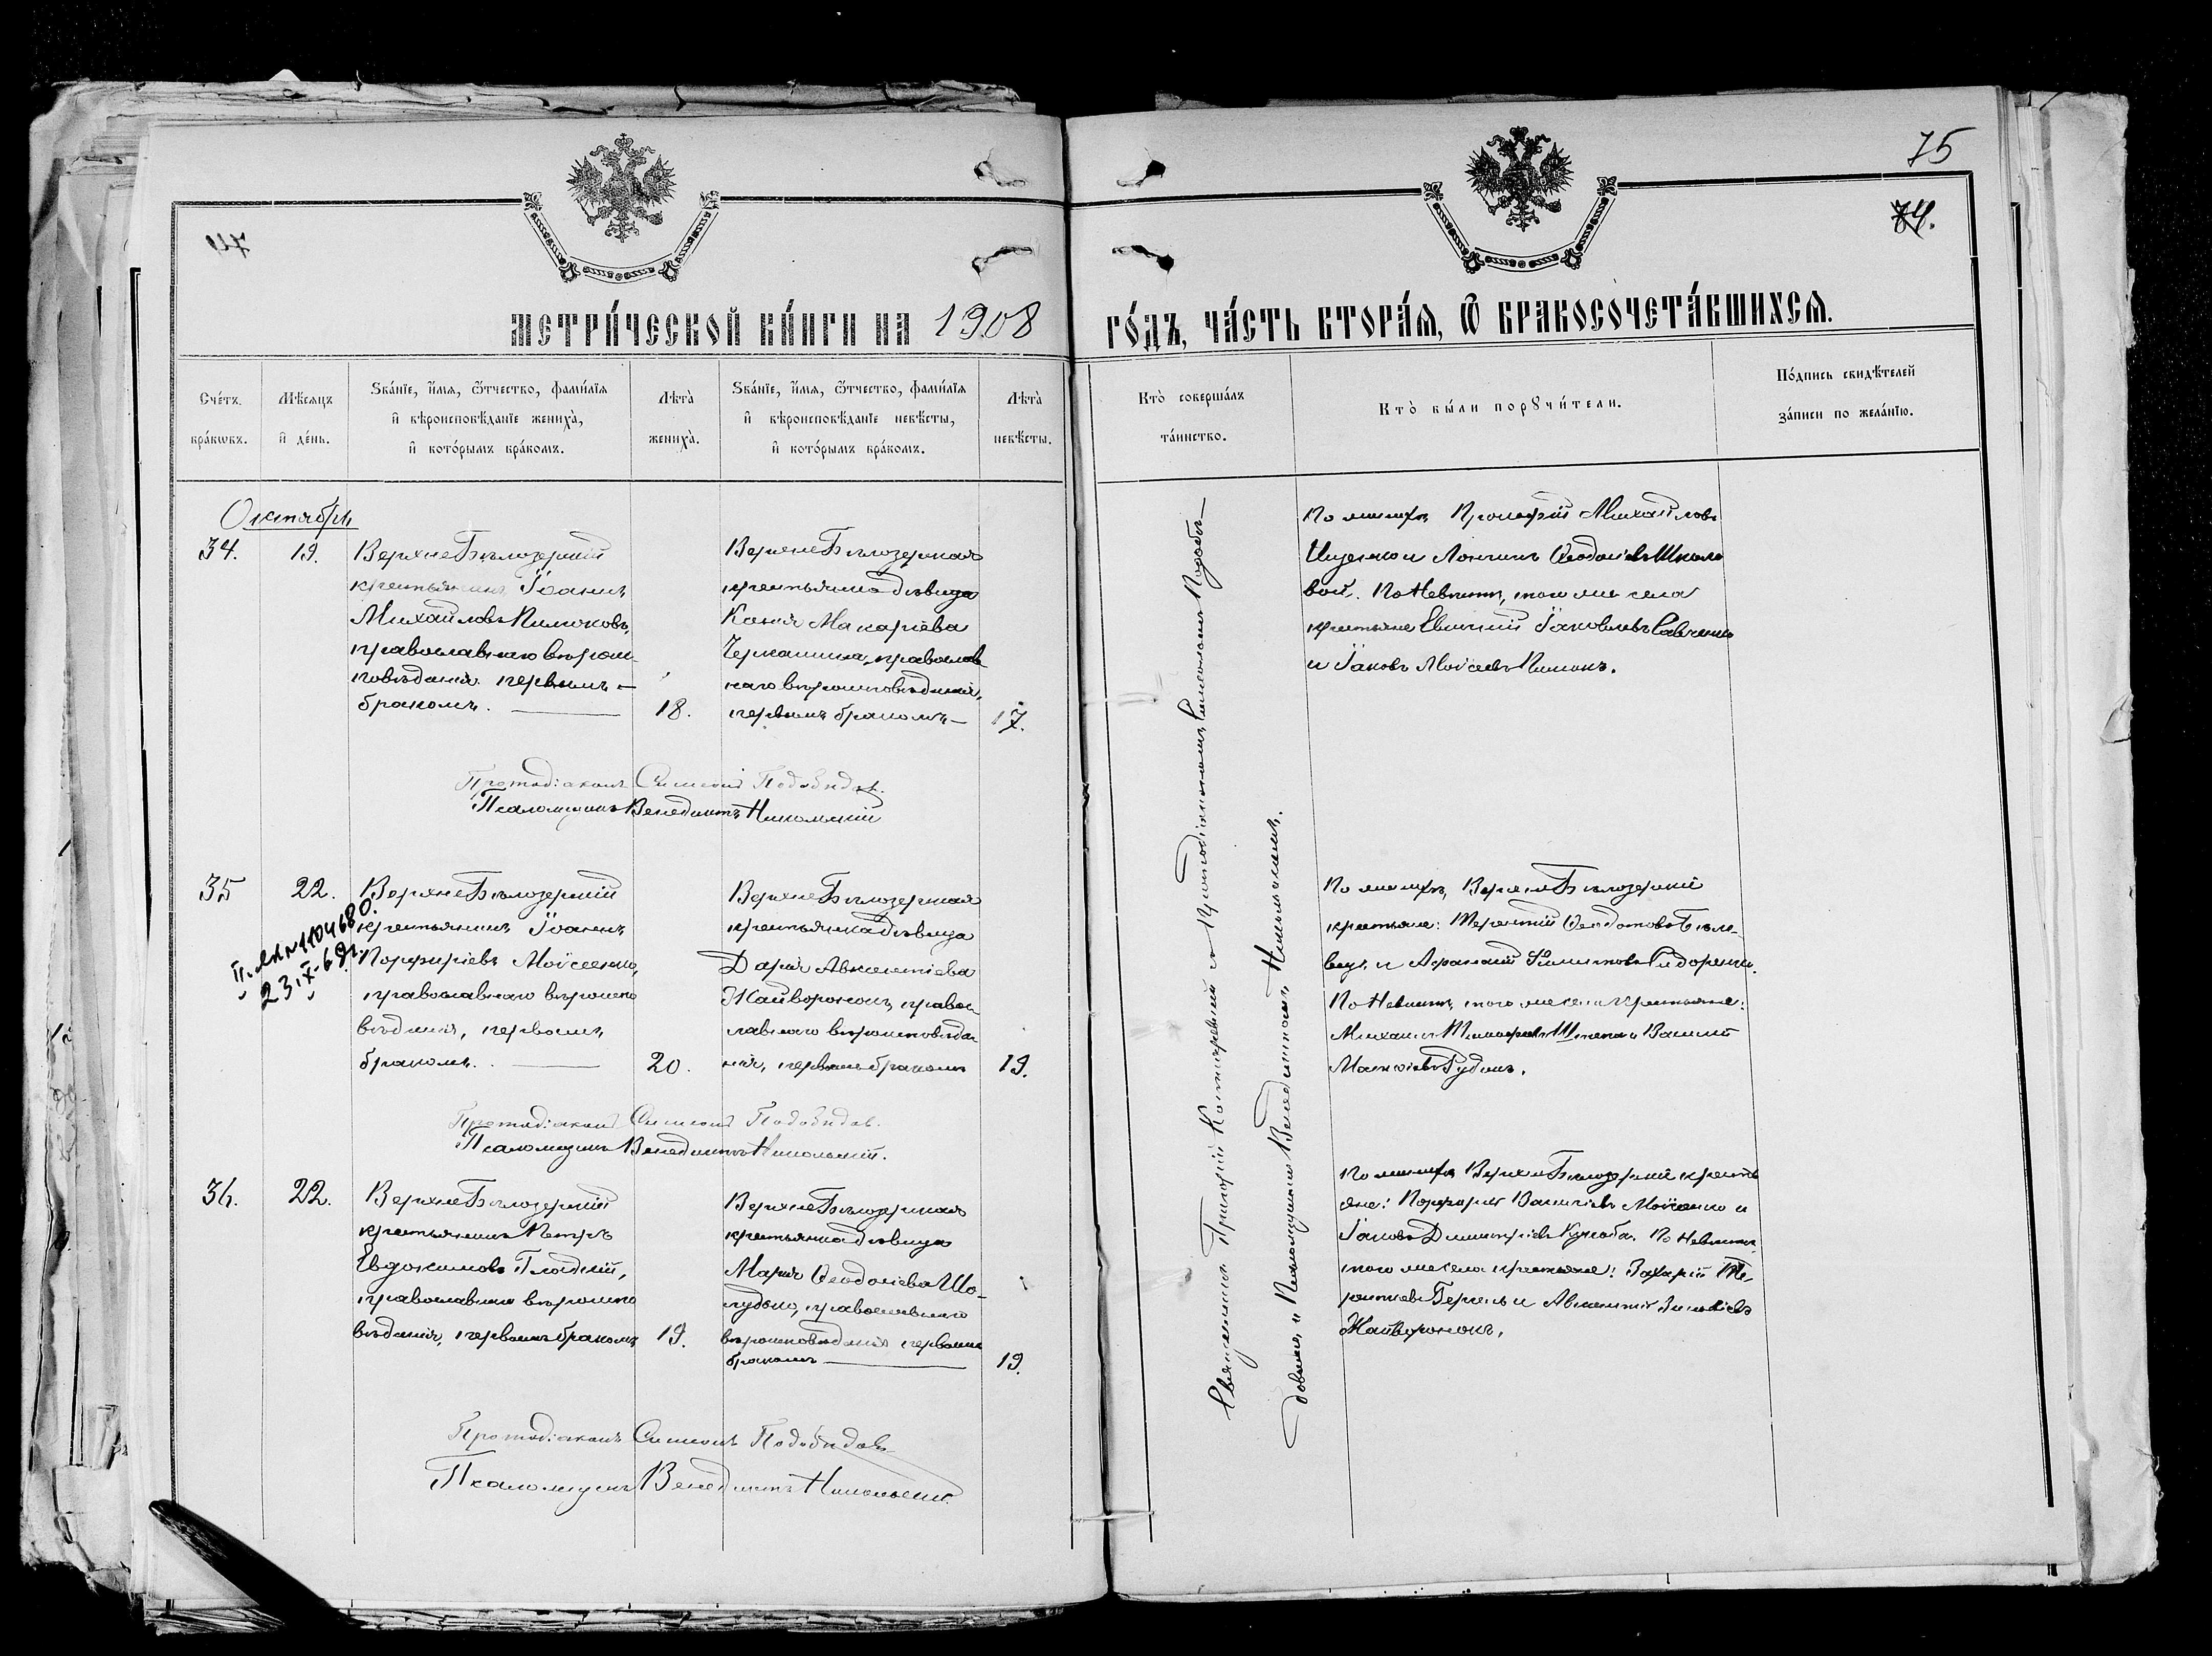 75
74.
47
МЕТРИ́ЧЕСКОЙ КНИ́ГИ НА 1908
ГО́ДЪ, ЧА́СТЬ ВТОРА́Я, Ѿ БРАКОСОЧЕТА́ВШИХСЯ.
Сче́тъ бра́кѡвъ.
Мѣ́сяцъ и҆ де́нь.
Ѕва́нїе, и҆́мя, ѻ҆́тчество, фами́лїя
и҆ вѣроисповѣ́данїе жениха̀,
и҆ кото́рымъ бра́комъ.
Лѣта̀ жениха̀.
Ѕва́нїе, и҆́мя, ѻ҆́тчество, фами́лїя
и҆ вѣроисповѣ́данїе невѣ́сты,
и҆ кото́рымъ бра́комъ.
Лѣта̀ невѣ́сты.
Кто̀ соверша́лъ
та́инство.
Кто̀ бы́ли порꙋчи́тели.
По́дпись свидѣ́телей
за́писи по жела́нїю.
Октябрь
34.
19.
ВерхнеБѣлозерскій
крестьянинъ Іоаннъ
Михайловъ
православнаго вѣроис-
повѣданія первымъ
бракомъ.
18.
ВерхнеБѣлозерская
крестьянка дѣвица
Ксенія Макаріева
православ
наго вѣроисповѣданія,
первымъ бракомъ
17.
По женихѣ Прокофій Михайловъ
и Логгинъ Ѳеодосіевъ
По Невѣстѣ, того же села
крестьяне Евгеній Іаковлевъ Савченко
и Іаковъ Моѵсеевъ
Протодіаконъ Симеонъ Подобѣдовъ.
Псаломщикъ Венедиктъ Никольскій
35
22.
ВерхнеБѣлозерскій
крестьянинъ Іоаннъ
Порфиріевъ Моисеенко,
православнаго вѣроиспо
вѣданія, первымъ
бракомъ.
20.
ВерхнеБѣлозерская
крестьянка дѣвица
Дарія Авксентіева
Жайворонокъ, правос
лавнаго вѣроисповѣда
нія, первымъ бракомъ
19.
По женихѣ, ВерхнеБѣлозерскіе
крестьяне: Терентій Ѳеодотовъ
и Аѳанасій Филиповъ Сидоренко.
По Невѣстѣ, того же села крестьяне:
Михаилъ Тимоѳеевъ и Василій
№1104680.
23.X-69г.
Протодіаконъ Симеонъ Подобѣдовъ.
Псаломщикъ Венедиктъ Никольскій.
36.
22.
ВерхнеБѣлозерскій
крестьянинъ Петръ
Евдокимовъ Гладкій,
православнаго вѣроиспо
вѣданія, первымъ бракомъ
19.
ВерхнеБѣлозерская
крестьянка дѣвица
Марія Ѳеодосіева Шо-
лудько, православнаго
вѣроисповѣданія первымъ
бракомъ
19.
По женихѣ ВерхнеБѣлозерскіе кресть
яне: Порфирій Василіевъ Моисеенко и
Іаковъ Димитріевъ По Невѣстѣ,
того же села крестьяне: Захарій Те-
рентіевъ и Авксентій
Жайворонокъ.
Протодіаконъ Симеонъ Подобѣдовъ
Псаломщикъ Венедиктъ Никольскій.
Священникъ Григорій съ Протодіакономъ Симеономъ Подобѣ-
довымъ и Псаломщикомъ Венедиктомъ Никольскимъ.